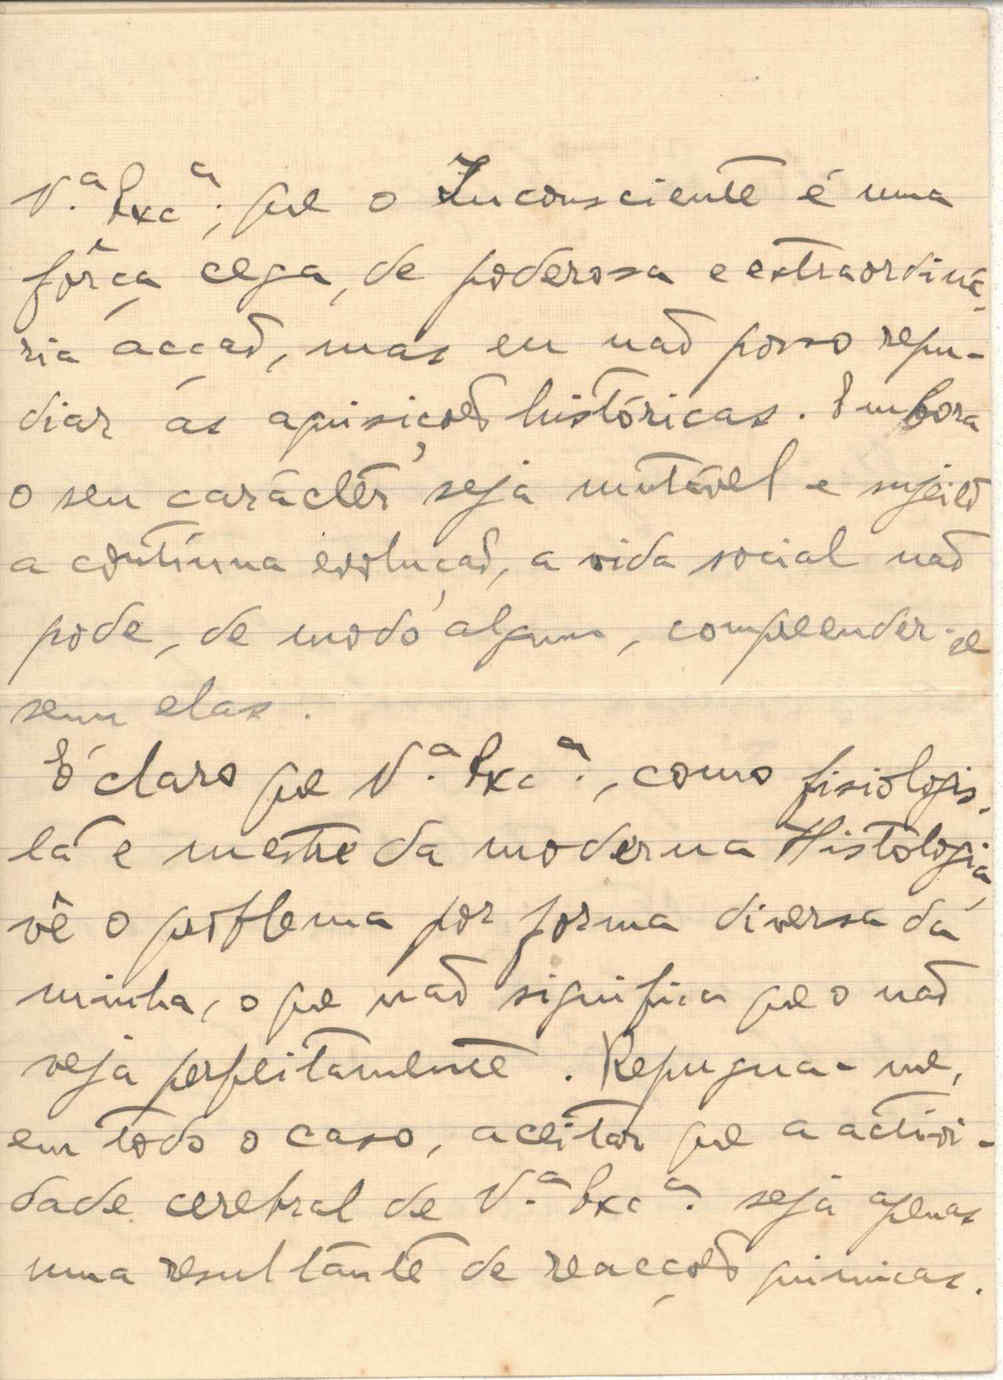 V.ª Exc.ª, que o Inconsciente é uma
fôrça cega, de poderosa e extraordiná-
ria acção, mas eu não posso repu-
diar as aquisições históricas. Embora
o seu carácter seja mutável e sujeito
a contínua evolução, a vida social não
pode, de modo algum, compreender-se
sem elas.
É claro que V.ª Exc.ª, como fisiologis-
ta e mestre da moderna Histologia,
vê o problema por forma diversa da
minha, o que não significa que o não
veja perfeitamente. Repugna-me,
em todo o caso, aceitar que a activi-
dade cerebral de V.ª Exc.ª seja apenas
uma resultante de reacções quimicas.